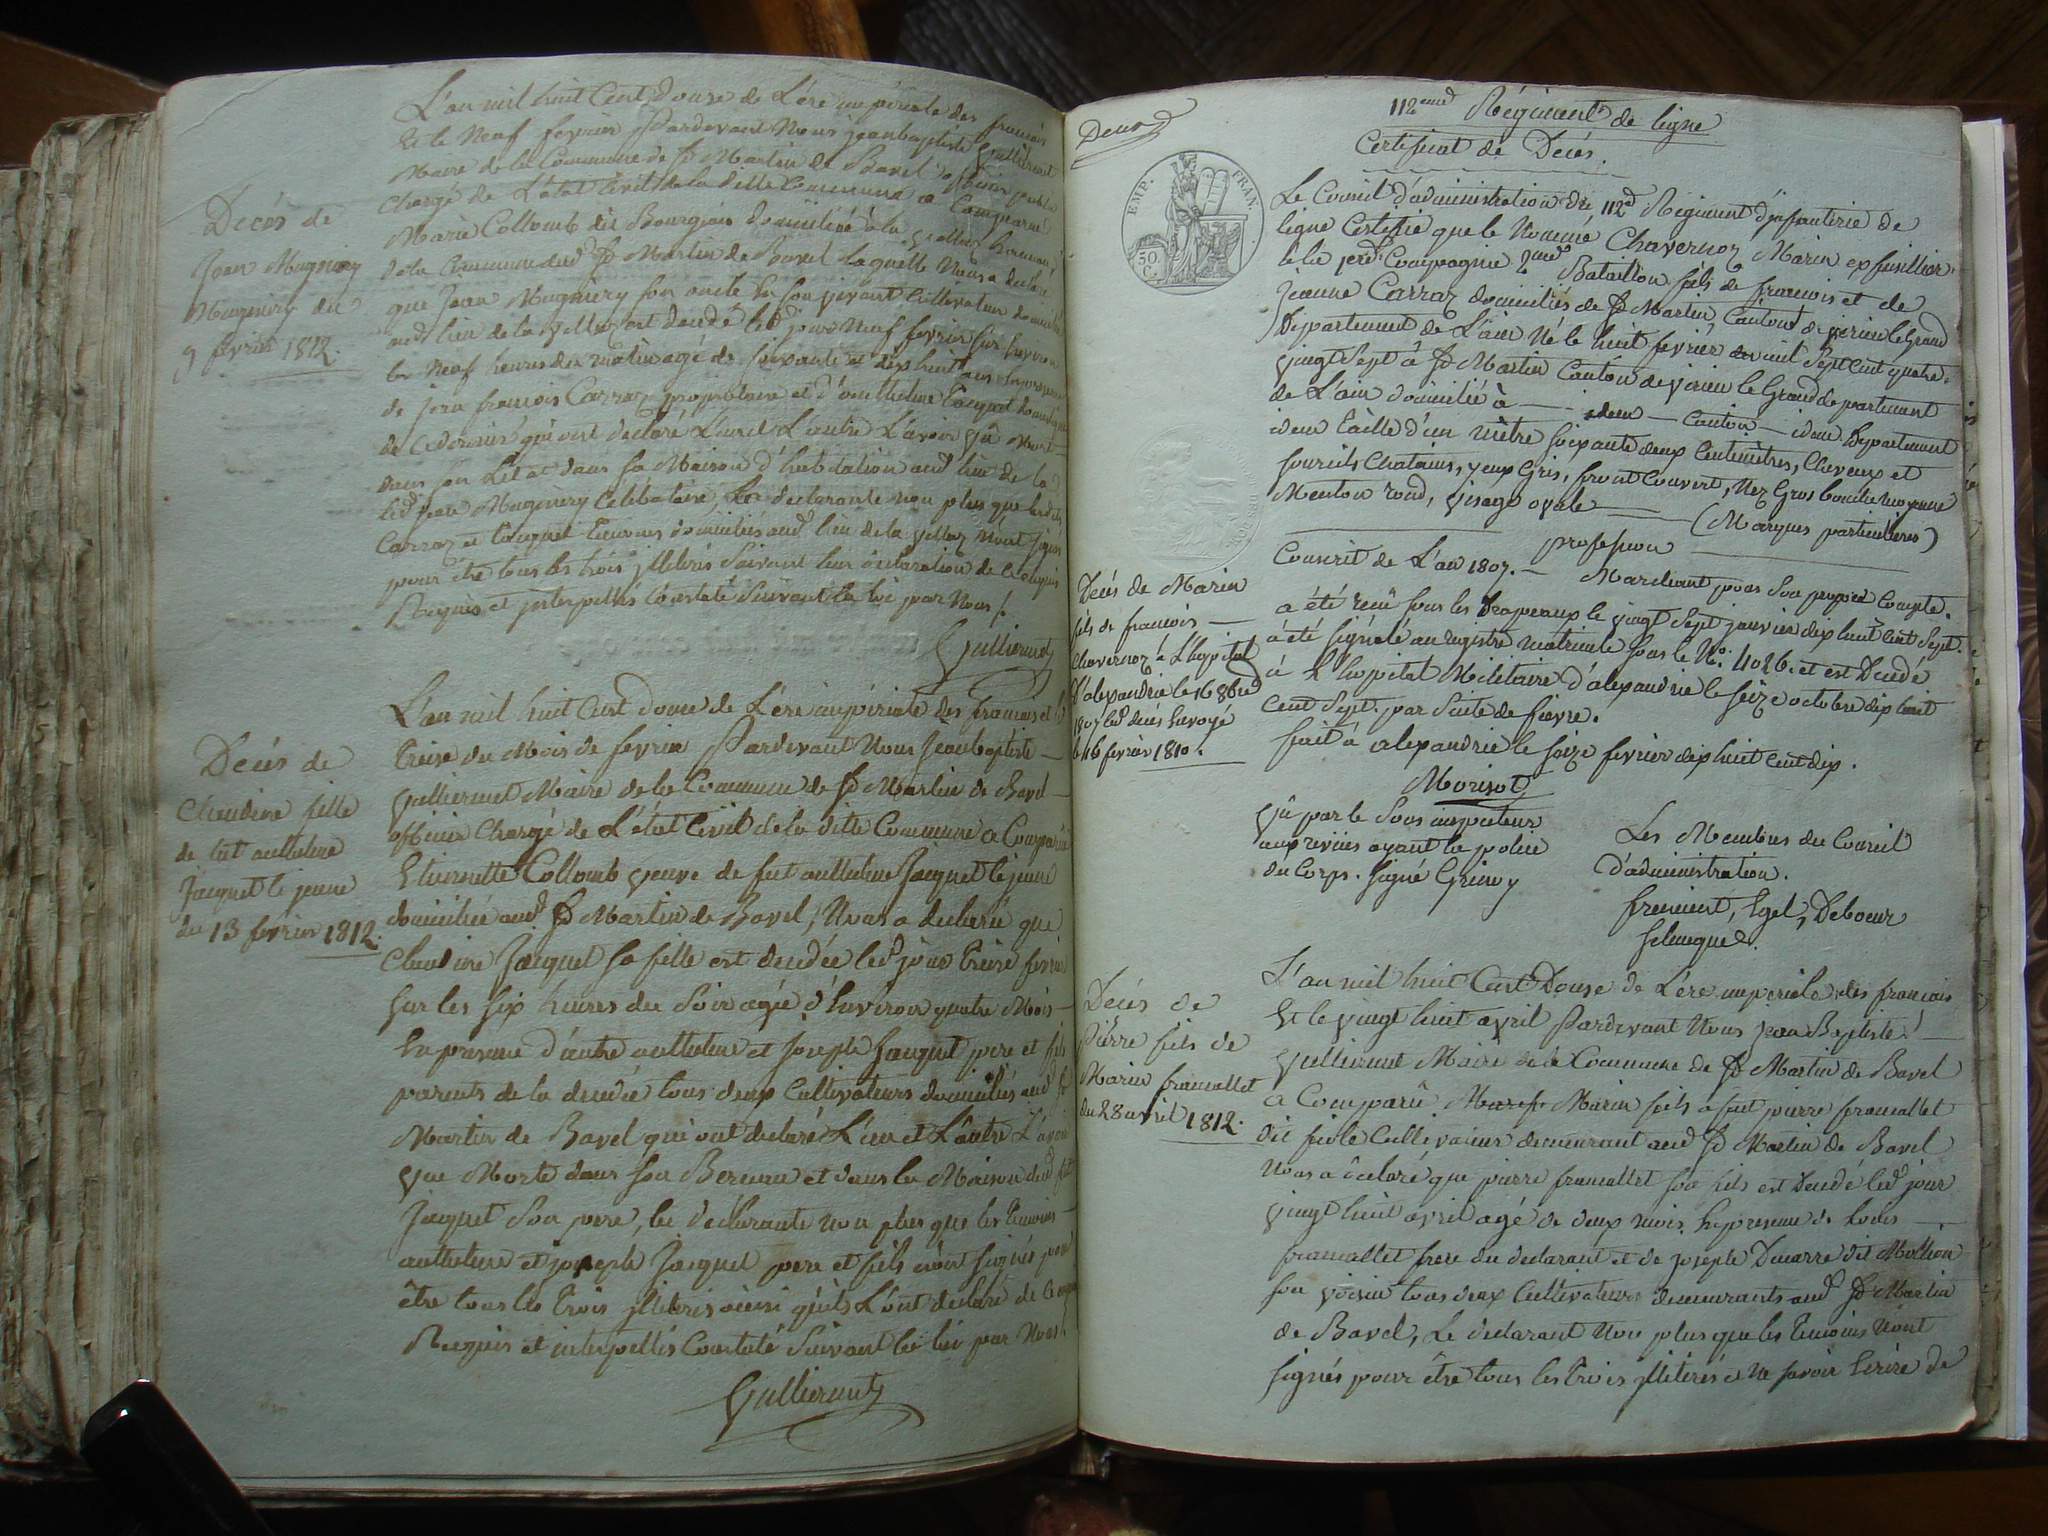 L'an mil huit Cent douze de L'ére impériale des francois
Et le Neuf fevrier Pardevant Nous jean baptiste Gullierment
Maire de la Commune de St Martin de Bavel officier public
Chargé de L'état Civil de la ditte Commune a Comparue
Marie Collomb dit Bourgeois domiciliée à la Vellaz hameau
de la Commune dud St Martin de Bavel laquelle Nous a declaré
que Jean Mugniery son oncle En son vivant Cultivateur domicilié
aud lieu de la Vellaz est decedé led jour Neuf fevrier sur Environ
les Neuf heures du matin agé de soixante et dix huit ans En presence
de jean francois Carraz proprietaire et d'anthelme Jacquet domestique
de Ce dernier qui ont declaré L'un et L'autre L'avoir Vû Mort
dans son Lit et dans sa Maison d'habitation aud lieu de la
led jean Mugniery Celibataire, La declarante non plus que lesdits
Carraz et Jacquet Temoins domiciliés aud lieu de la Vellaz N'ont signés
pour être tous les trois jlliterés Suivant leur déclaration de Ce enquis
Requis et jnterpellés Constaté Suivant la loi par Nous /.
Gullierment
Decés de
Jean Mugniery
Mugniery du
9 fevrier 1812.
L'an mil huit Cent douze de L'ére impériale des francois et le
Treize du Mois de fevrier Pardevant Nous Jean baptiste
Gullierment Maire de la Commune de St Martin de Bavel
officier Chargé de L'état Civil de la ditte Commune a Comparüe
Etiennette Collomb Veuve de fut anthelme Jacquet le jeune
domiciliée aud St Martin de Bavel, Nous a declaré que
Claudine Jacquet sa fille est decedée led jour Treize fevrier
sur les six heures du Soir agée d'Environ quatre Mois
En presence d'autre anthelme et Joseph Jacquet pere et fils
parents de la decedée tous deux Cultivateurs domiciliés aud St
Martin de Bavel qui ont declaré L'un et L'autre L'avoir
Vue Morte dans son Berceau et dans la Maison dud fut
Jacquet Son pere, la déclarante non plus que les Temoins
anthelme et joseph Jacquet pere et fils n'ont signés pour
être tous les Trois jlliterés ainsi qu'ils L'ont declaré de Ce enquis
Requis et interpellés Constaté Suivant la loi par Nous.
Gullierment
Decés de
Claudine fille
de fut anthelme
Jacquet le jeune
du 13 fevrier 1812.
Deux
EMP. FRAN.
50 C.
112eme Régiment de ligne
Certificat de Decés.
Le Conseil d'administration du 112e Régiment d'jnfanterie de
ligne Certifie que le Nommé Chavernoz Marin ex fusillier
à la Compagnie 2me Bataillon fils de francois et de
Jeanne Carraz domiciliés de St Martin Canton de virieu le Grand
Département de L'ain Né le huit fevrier mil Sept Cent quatre
vingt Sept à St Martin Canton de virieu le Grand departement
de L'ain domicilié à — idem — Canton — idem Département
idem Taille d'un mètre soixante deux Centimètres, Cheveux et
sourcils Chatains, yeux Gris, front Couvert, Nez Gros bouche moyenne
Menton rond, Visage ovale — (Marques particulieres)
profession
Conscrit de L'an 1807. — Marchant pour Son propre Compte.
a été recû sous les Drapeaux le vingt Sept janvier dix huit Cent Sept.
a été signalé au registre matricule sous le No. 4026. et est Decedé
à L'hopital Militaire d'alexandrie le seize octobre dix huit
Cent Sept. par Suite de fievre.
fait à alexandrie le seize fevrier dix huit Cent dix.
Morisot
Vû par le Sous inspecteur
aux revües ayant la police
du Corps. Signé Grimoy
Les Membres du Conseil
d'administration.
fremient, Egel, Deboeur
Decés de Marin
fils de francois —
Chavernoz à L'hopital
d'alexandrie le 16 8bre
1807 led decés Envoyé
le 16 fevrier 1810.
L'an mil huit Cent Douze de L'ére imperiale des francois
Et le vingt huit avril Pardevant Nous jean Baptiste
Gullierment Maire de la Commune de St Martin de Bavel
a Comparû Marin fils à fut pierre framallet
dit Cultivateur demeurant aud St Martin de Bavel
Nous a déclaré que pierre framallet son fils est Decedé led jour
vingt huit avril agé de deux mois En presence de Louis
framallet frere du declarant et de joseph Ducarre dit Million
son voisin tous deux Cultivateurs demeurants aud St Martin
de Bavel, Le declarant Non plus que les Temoins N'ont
signés pour être tous les Trois jlliterés et Ne savoir Ecrire de
Decés de
Pierre fils de
Marin framallet
du 28 avril 1812.